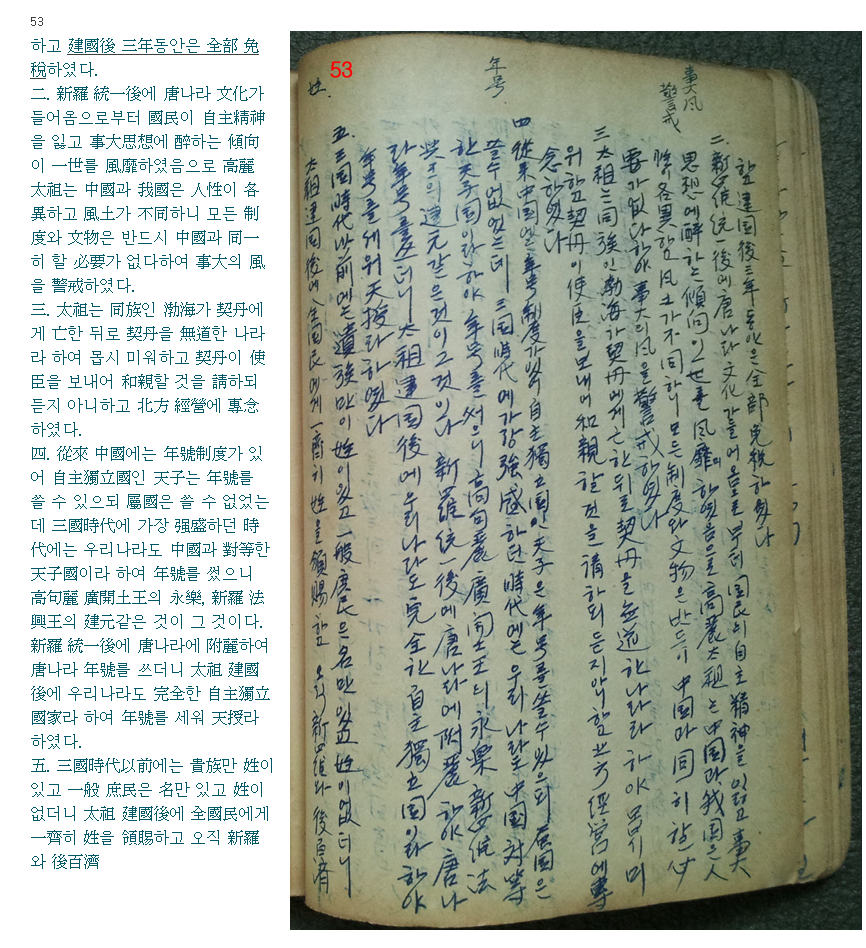 53
하고 建國後 三年동안은 全部 免
稅하였다.
二. 新羅 統一後에 唐나라 文化가
들어옴으로부터 國民이 自主精神
을 잃고 事大思想에 醉하는 傾向
이 一世를 風靡하였음으로 高麗
太祖는 中國과 我國은 人性이 各
異하고 風土가 不同하니 모든 制
度와 文物은 반드시 中國과 同一
히 할 必要가 없다하여 事大의 風
을 警戒하였다.
三. 太祖는 同族인 渤海가 契丹에
게 亡한 뒤로 契丹을 無道한 나라
라 하여 몹시 미워하고 契丹이 使
臣을 보내어 和親할 것을 請하되
듣지 아니하고 北方 經營에 專念
하였다.
四. 從來 中國에는 年號制度가 있
어 自主獨立國인 天子는 年號를
쓸 수 있으되 屬國은 쓸 수 없었는
데 三國時代에 가장 强盛하던 時
代에는 우리나라도 中國과 對等한
天子國이라 하여 年號를 썼으니
高句麗 廣開土王의 永樂, 新羅 法
興王의 建元같은 것이 그 것이다.
新羅 統一後에 唐나라에 附麗하여
唐나라 年號를 쓰더니 太祖 建國
後에 우리나라도 完全한 自主獨立
國家라 하여 年號를 세워 天授라
하였다.
五. 三國時代以前에는 貴族만 姓이
있고 一般 庶民은 名만 있고 姓이
없더니 太祖 建國後에 全國民에게
一齊히 姓을 領賜하고 오직 新羅
와 後百濟
53
事大風
警戒
年号
姓.
하고 建国後 三年동안은 全部 免稅하였다
二. 新罗統一後에 唐나라 文化가 들어옴으로부터 国民이 自主精神을 잃고 事大
思想에 醉하는 傾向이 一世를 風靡하였음으로 高麗太祖는 中国과 我国은 人
性이 各異하고 風土가 不同하니 모든 制度와 文物은 반드시 中国과 同一히 할 必
要가 없다하야 事大의 風을 警戒하였다
三 太祖는 同族인 渤海가 契丹에게 亡한 뒤로 契丹을 無道한 나라라 하야 몹시 미
워하고 契丹이 使臣을 보내어 和親할 것을 請하되 듣지 아니하고 北方 經營에 專
念하였다
四 從來 中国에는 年号制度가 있어 自主獨立国인 天子는 年号를 쓸 수 있으되 属国은
쓸 수 없었는데 三国時代에 가장 強盛하던 時代에는 우리나라도 中国과 対等
한 天子国이라 하야 年号를 썼으니 高句麗 廣開土王의 永樂 新罗 法
興王의 建元같은 것이 그것이다 新羅統一後에 唐나라에 附麗하야 唐나
라 年号를 쓰더니 太祖建国後에 우리나라도 完全한 自主獨立国이라 하야
年号를 세워 天授라 하였다
五. 三国時代以前에는 貴族만 姓이 있고 一般庶民은 名만 있고 姓이 없더니
太祖建国後에 全国民에게 一齊히 姓을 領賜하고 오직 新羅와 後百済